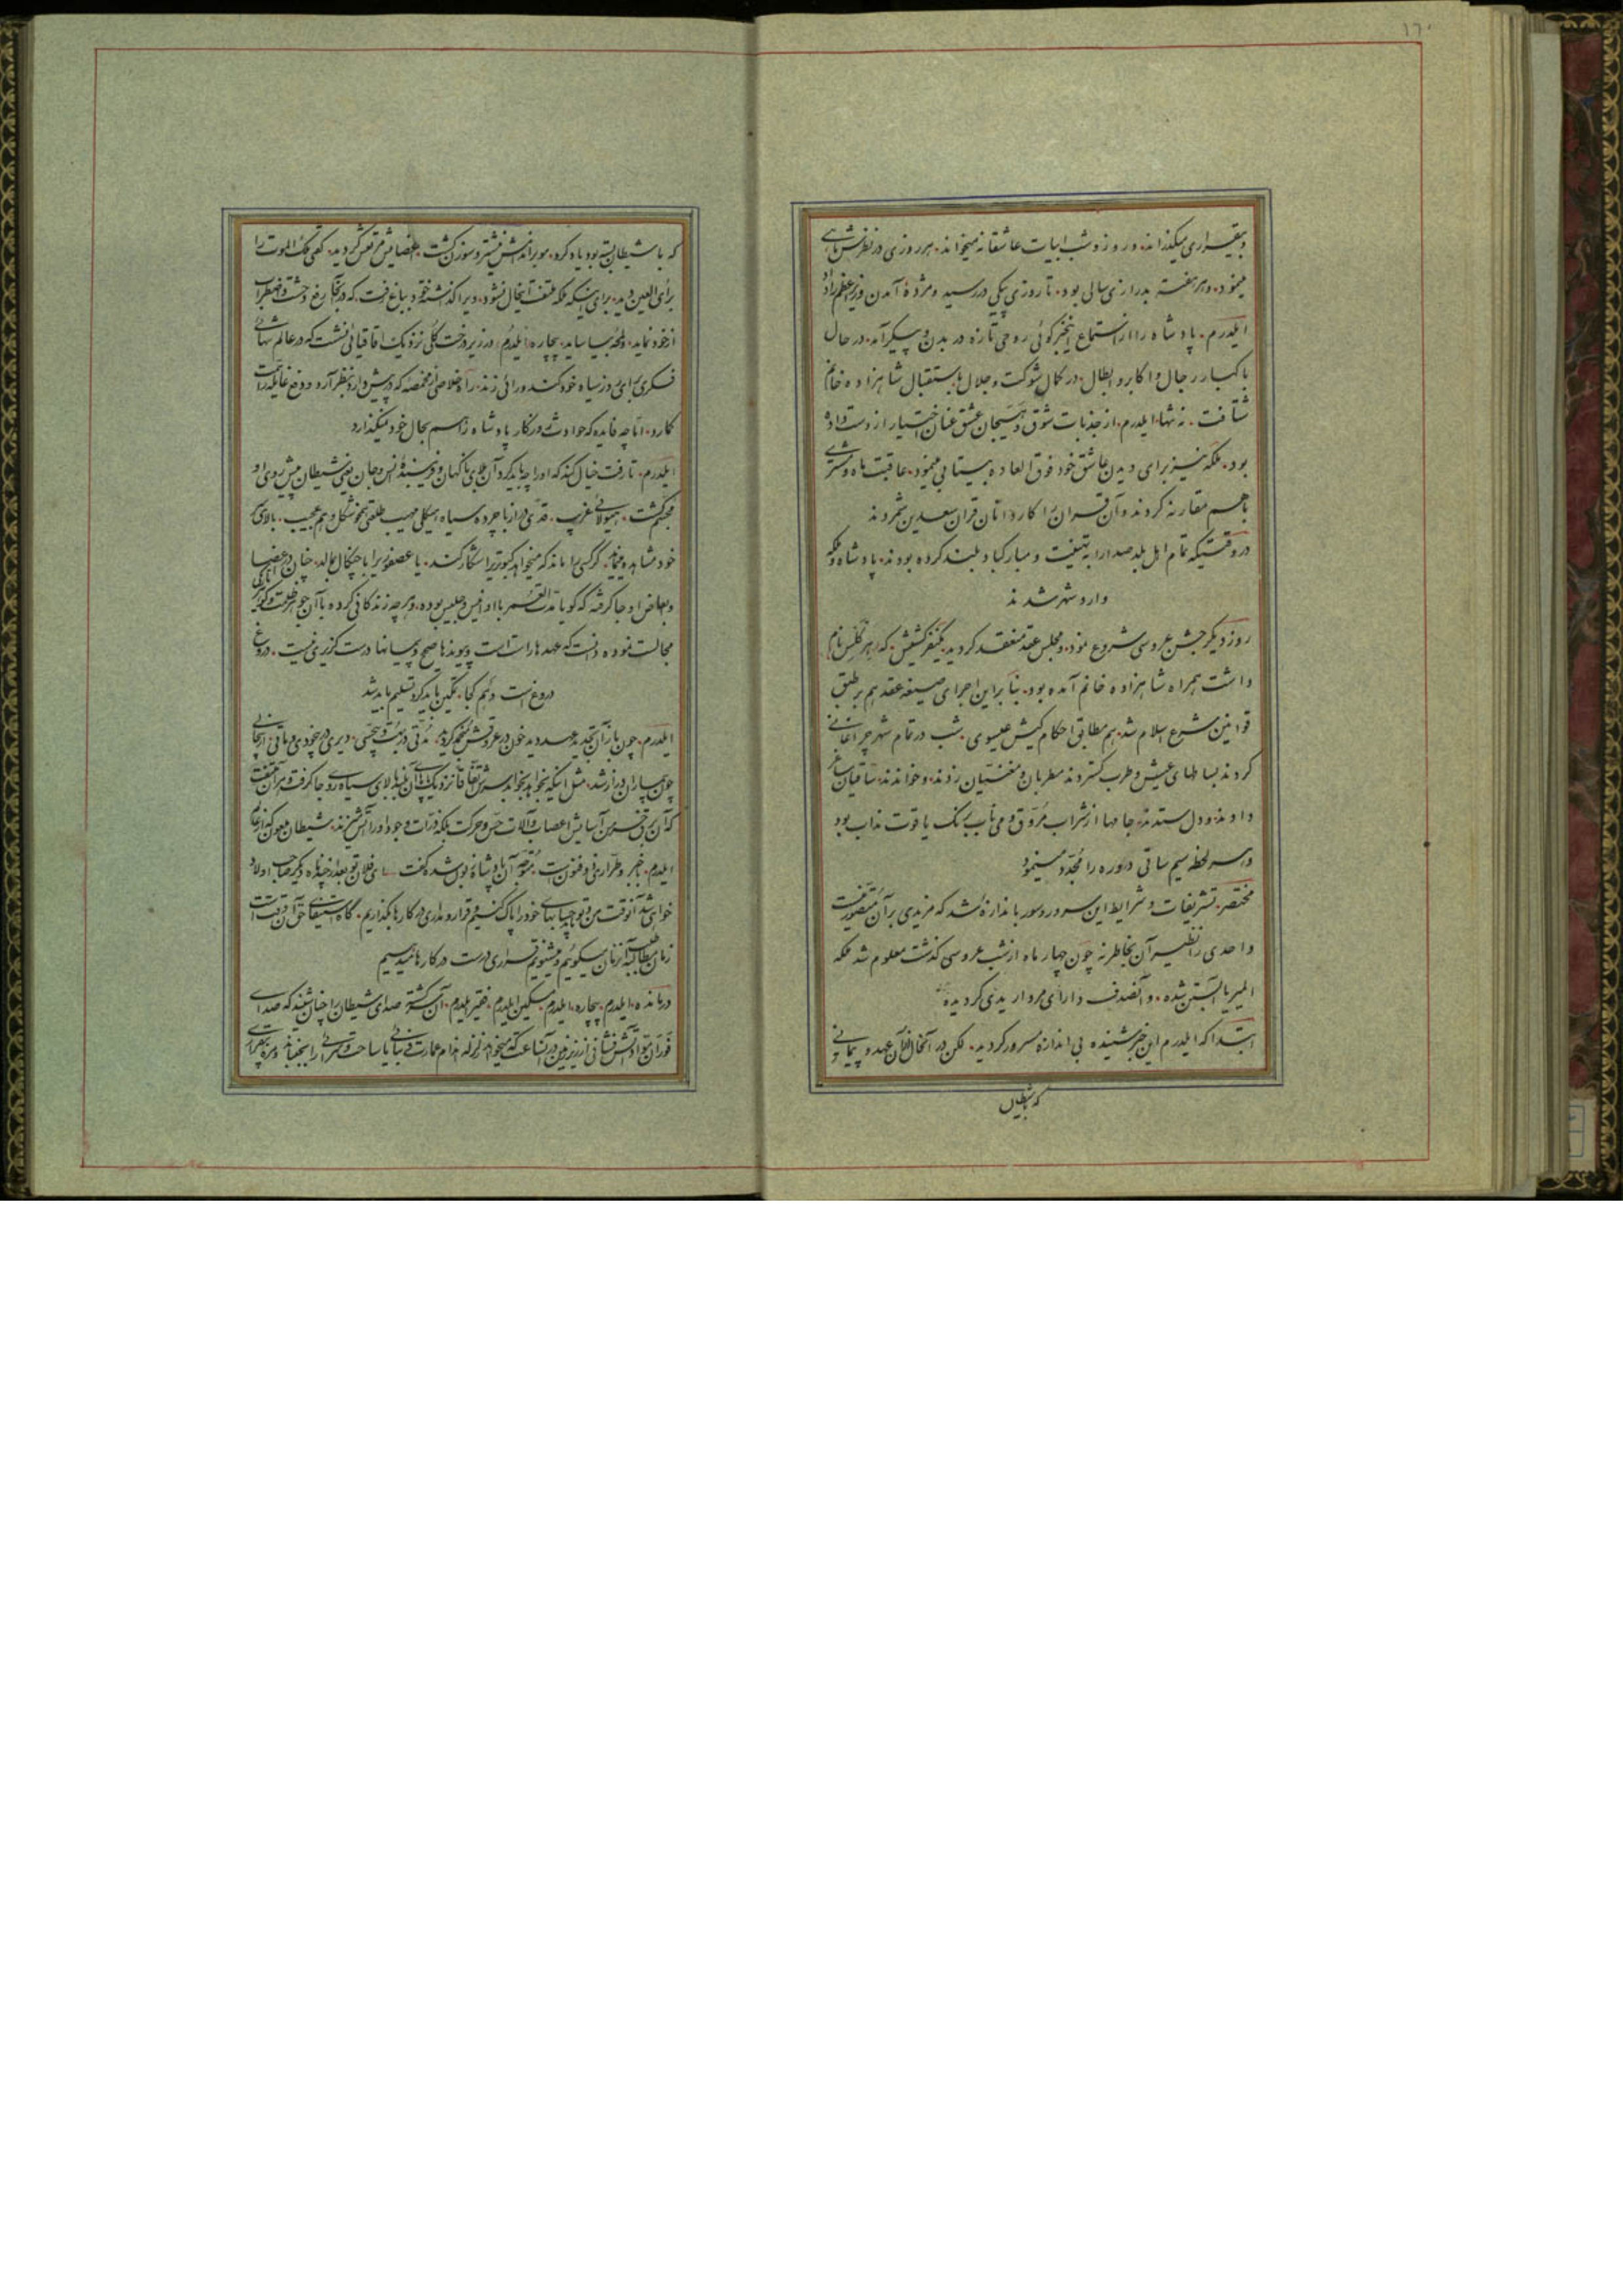 ۱۲۰
و بیقراری میگذراند، و روز و شب ابیات عاشقانه میخواند. هر روزی در نظرش ماهی
مینمود. و هر هفته بدرازی سالی بود. تا روزی پیکی در رسید و مژدهٔ آمدن وزیر اعظم را داد
ایلدرم. پادشاه را از استماع اینخبر گوئی روحی تازه در بدن و پیکر آمد. در حال
با کبار رجال و اکابر و ابطال. در کمال شوکت و جلال باستقبال شاهزاده خانم
شتافت. نه تنها ایلدرم. از جذبات شوق و هیجان عشق عنان اختیار از دست داده
بود. ملکه نیز برای دیدن عاشق خود فوق العاده بیتابی مینمود. عاقبت ماه و مشتری
باهم مقارنه کردند و آن قران را کاردانان قران سعدین شمردند
در وقتیکه تمام اهل بلد صدا را به تهنیت و مبارکباد بلند کرده بودند. پادشاه و ملکه
وارد شهر شدند
روز دیگر جشن عروسی شروع نمود. و مجلس عقد منعقد گردید. یکنفر کشیش. که نام
داشت همراه شاهزاده خانم آمده بود. بنا براین اجرای صیغه عقد هم بر طبق
قوانین شرع اسلام شد. هم مطابق احکام کیش عیسوی. شب در تمام شهر چراغانی
کردند بساطهای عیش و طرب گستردند مطربان و مغنّیان زدند. و خواندند. ساقیان ساغر
دادند و دل ستدند. جامها از شراب مروّق و می ناب برنک یاقوت مذاب بود
و هر لحظه سیم ساقی دوره را مجدّد مینمود
مختصر. تشریفات و شرایط این سرور و سور باندازهٔ شد که مزیدی بر آن متصوّر نیست
واحدی را نظیر آن بخاطر نه چون چهار ماه از شب عروسی گذشت معلوم شد ملکه
المیر یا آبستن شده. و آنصدف دارای مرواریدی گردیده
ابتدا که ایلدرم این خبر شنیده بی اندازه مسرور گردید. لکن در آنحال از آن عهد و پیمانی
که با شیطان
که با شیطان بسته بود یاد کرد. مو بر اندامش نیشتر و سوزن گشت. اعضایش مرتعش گردید. گفتی ملک الموت را
برأی العین دید. برای اینکه ملکه ملتفت آنحال نشود. ویرا گذاشته خود بباغ رفت. که در آنجا رفع وحشت و اضطراب
از خود نماید. و لمحهٔ بیاساید. بیچاره ایلدرم. در زیر درخت گلی نزدیک اقاقیائی نشست که در عالم تنهائی
فکری برای روز سیاه خود کند و رائی زند. راه خلاصی از مخمصه که در پیش دارد بنظر آرد و دفع غایله را
کارد. امّا چه فایده که حوادث روزگار پادشاه را هم بحال خود نمیگذارد
ایلدرم. تا رفت خیال کند که او را چه باید کرد آن بلای ناگهان و فریبندهٔ انس و جان یعنی شیطان پیش روی او
مجسّم گشت. هیولائی غریب. قدّی دراز با چرده سیاه هیکلی مهیب خلقتی هم بدشکل و هم عجیب. بالای سر
خود مشاهده نماید. کرکسی را ماند که میخواهد کبوتری را شکار کند. یا عصفوری را با چنگال بمالد. چنان در اعضا
و ابعاض او جا گرفته که گویا مدّت العمر با او انیس و جلیس بوده، و هر چه زندگانی کرده با آن جوهر ظلمت و تاریکی
مجالست نموده دانست که عهدها راست است و پیوندها صحیح و پیمانها درست گزیری نیست. دروغ
دروغ است و بیم کجا. تمکین باید کرد تسلیم باید شد
ایلدرم. چون باز آن تجدید عهد دید خون در عروقش منجمد گردید. مدّتی در بهت و بیحسّی. دیری در بیخودی و ماتی. از جا
چون بیماران دراز شد. مثل اینکه بخواهد بخوابد سرش اتفاقاً نزدیک پای آن بلند بالای سیاه رو جا گرفت و بر آن
که آن برق خرمن آسایش اعصاب و آلات حسّ و حرکت بلکه ذرّات وجود او را آتش میزند. شیطان ملعون که از حال
ایلدرم. خبیر و طرّار بی فنون است. متوجّه آن پادشاه زبون شده گفت ای فلان تو بعد از چند ماه دیگر صاحب اولاد
خواهی شد آنوقت من و تو باید حسابهای خود را پاک کنیم و قرار و مداری در کارها بگذاریم. گاه استیفای حق آن وقت است
زمان مطالبه آنزمان میگوئیم و میشنویم قراری درست در کارها میدهیم
درمانده ایلدرم. بیچاره ایلدرم. مسکین ایلدرم. فقیر ایلدرم. آن گشته صدای شیطان را چنان شنید که صدای
فوران مواد آتش فشانی از زیر زمین در آنساعت که میخواهد زلزله اندام عمارت و بنائی یا ساحت و سرائی را بجنباند